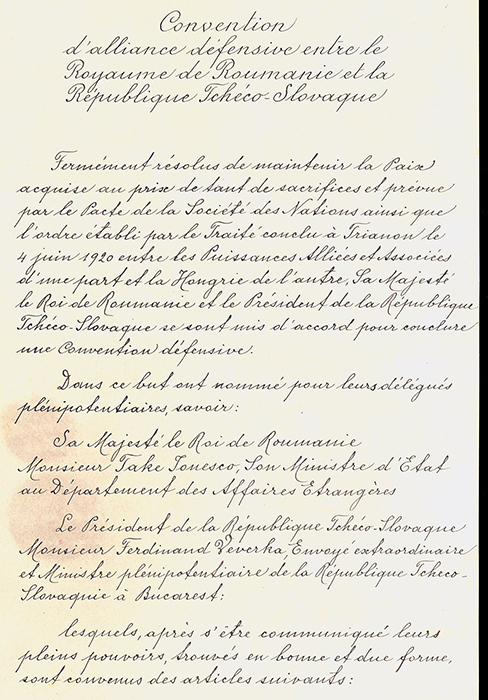 Convention
d'alliance défensive entre le
Royaume de Roumanie et la
République Tchéco-Slovaque
Fermément résolus de maintenir la Paix
acquise au prix de tant de sacrifices et prévue
par le Pacte de la Société des Nations ainsi que
l'ordre établi par le Traité conclu à Trianon le
4 juin 1920 entre les Puissances Alliées et Associées
d'une part et la Hongrie de l'autre, Sa Majesté
le Roi de Roumanie et le Président de la République
Tchéco-Slovaque se sont mis d'accord pour conclure
une Convention défensive.
Dans ce but ont nommé pour leurs délégués
plénipotentiaires, savoir:
Sa Majesté le Roi de Roumanie
Monsieur Take Ionesco, Son Ministre d'Etat
au Département des Affaires Etrangères
Le Président de la République Tchéco-Slovaque
Monsieur Ferdinand Veverka, Envoyé extraordinaire
et Ministre plénipotentiaire de la République Tcheco-
Slovaquie à Bucarest:
lesquels, après s'être communiqué leurs
pleins pouvoirs, trouvés en bonne et due forme,
sont convenus des articles suivants: